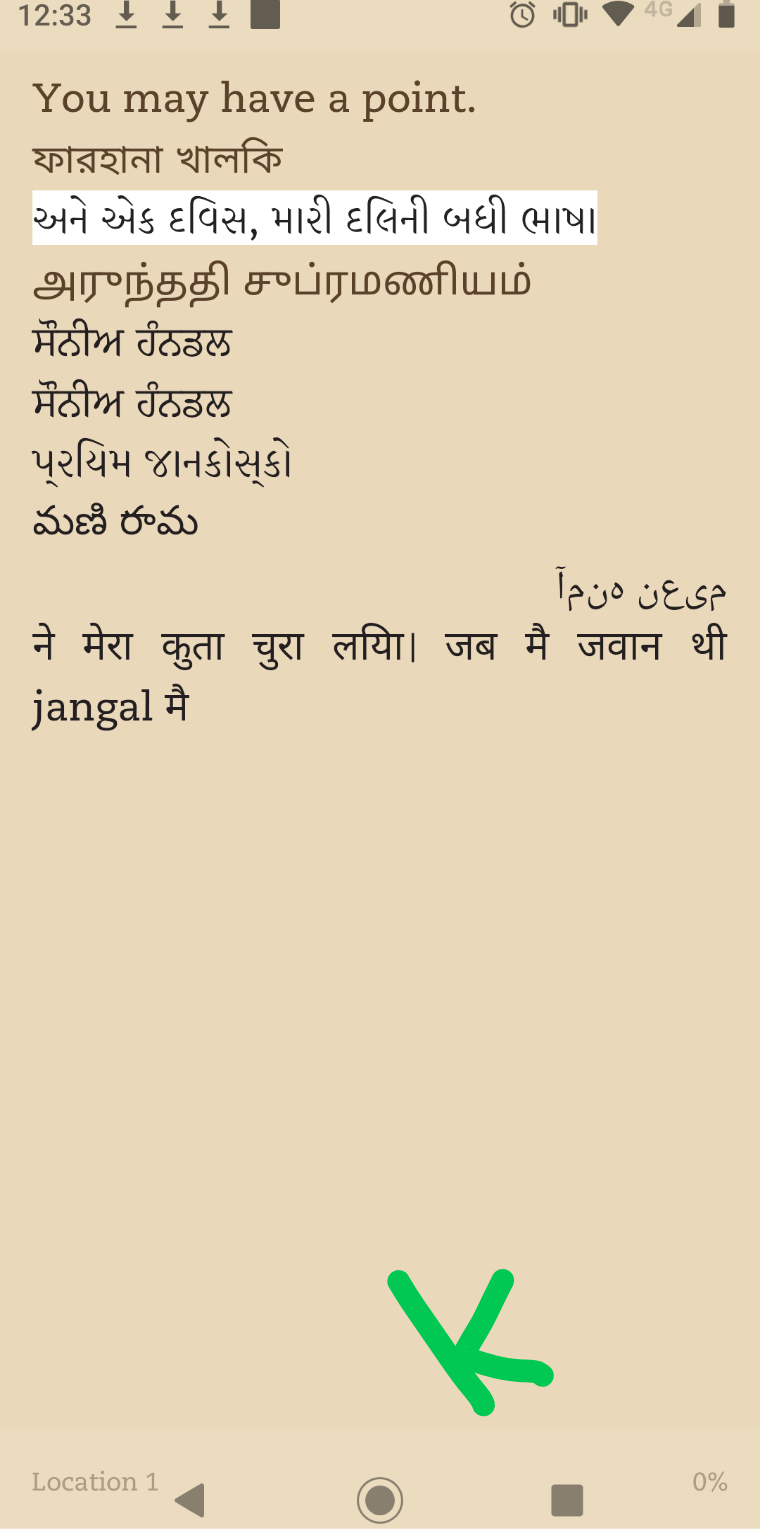 12:33
4G
You may have a point.
ফারহানা খালকি
અને એક દવિસ, મારી દલિની બધી ભાષા
அருந்ததி சுப்ரமணியம்
ਸੌਨੀਅ ਹੰਨਡਲ
ਸੌਨੀਅ ਹੰਨਡਲ
પ્રયિમ જાનકોસ્કો
మణి రామ
آمنه نعیم
ने मेरा कुता चुरा लयिा। जब मै जवान थी
jangal मै
K
Location 1
0%